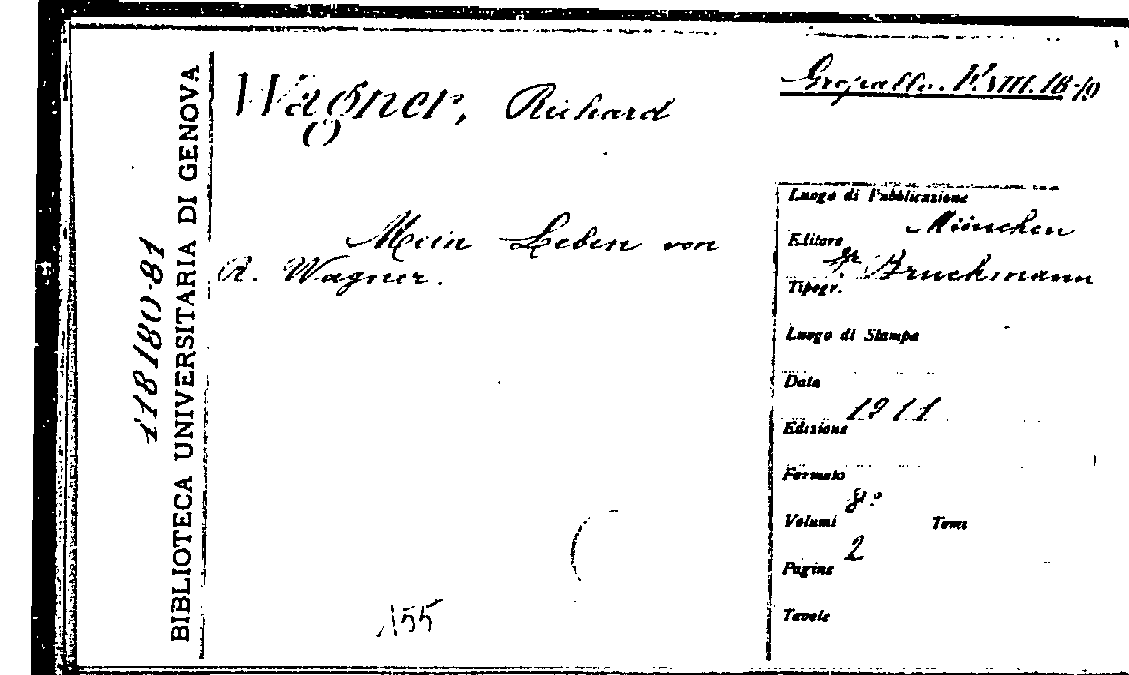 BIBLIOTECA UNIVERSITARIA DI GENOVA
118180-81
Wagner, Richard
Gropallo. F. VIII. 18-19
Mein Leben von
R. Wagner.
Luogo di Pubblicazione
München
Editore
Fr. Bruckmann
Tipogr.
Luogo di Stampa
Data
1911
Edizione
Formato
8°
Volumi Tomi
2
Pagine
Tavole
155